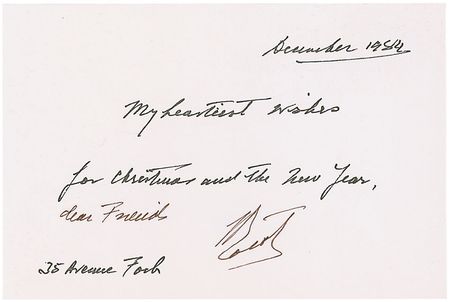 December 1984
My heartiest wishes
for Christmas and the New Year,
dear Friends
35 Avenue Foch